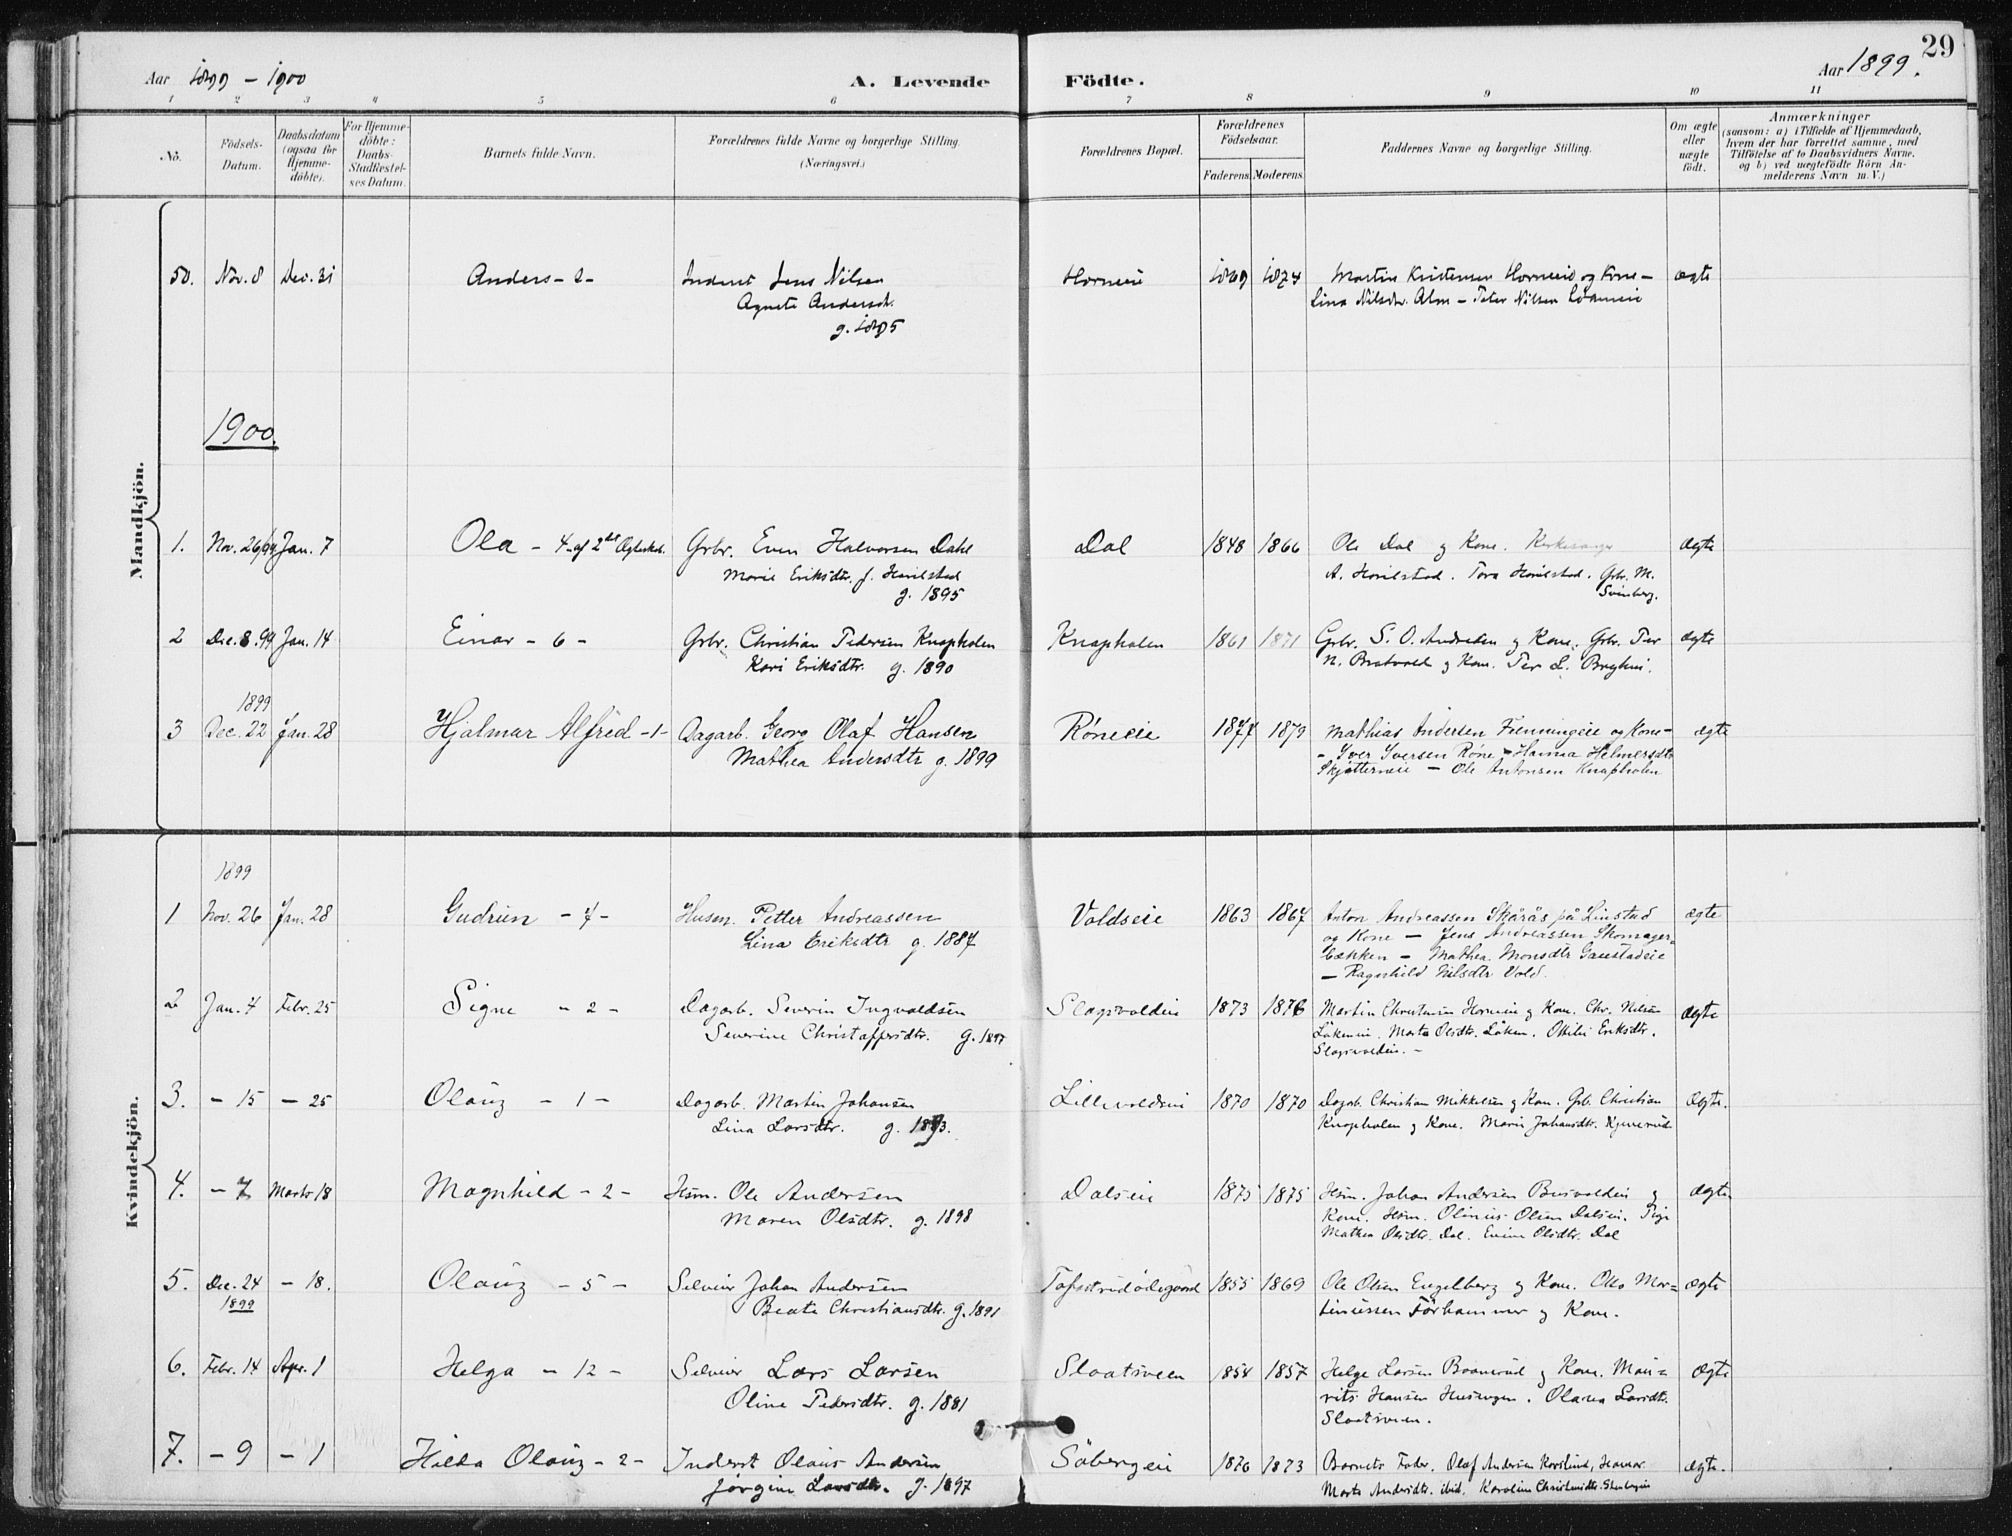 29
Aar 1899 – 1900
A. Levende
Födte.
Aar 1899.
1 2 3 4 5 6 7 8 9 10 11
No.
Födsels-
Datum.
Daabsdatum
(ogsaa for
Hjemme-
döbte).
For Hjemme-
döbte:
Daabs-
Stadfæstel-
ses Datum.
Barnets fulde Navn.
Forældrenes fulde Navne og borgerlige Stilling.
(Næringsvei.)
Forældrenes Bopæl.
Forældrenes
Födselsaar.
Faderens. Moderens.
Faddernes Navne og borgerlige Stilling.
Om ægte
eller
uægte
födt.
Anmærkninger
(saasom: a) i Tilfælde af Hjemmedaab,
hvem der har forrettet samme, med
Tilföielse af to Daabsvidners Navne.
og b) ved uægtefödte Börn An-
melderens Navn m. V.)
Mandkjön.
50. Nov. 8 Dec. 31 Anders – 2 – Inderst Jens Nilsen
Agnete Andersd.
g. 1895
Horneie 1869 1874 Martin Kristensen Horneie og Kone –
Lina Nilsdtr. Alm – Peter Nilsen
ægte
1900.
1. Nov. 26/99 Jan. 7 Ola – 4 – af 2det Ægtesk. Grbr. Even Halvorsen Dahl
Marie Eriksdtr. f. Horilstad
g. 1895
Dal 1848 1866 Ole Dal og Kone. Kirkesanger
A. Horilstad. Tora Horilstad. Grbr. M.
Svinberg.
Ægte
2 Dec. 8. 99 Jan. 14 Einar – 6 – Grbr. Christian Pedersen Knapholen
Kari Eriksdtr. g. 1890
Knapholen 1861 1871 Grbr. S. O. Andreasen og Kone. Grbr. Per
N. Bratvold og Kone. Per L.
Ægte
1899
3 Dec. 22 Jan. 28 Hjalmar Alfred – 1 – Dagarb. Georg Olaf Hansen
Mathea Andersdtr g. 1899
Røneeie 1877 1879 Mathias Andersen Flemningeie og Kone –
– Iver Iversen Røne – Hanna Helmersdtr
Skjøtterneie – Ole Antonsen Knapholen
ægte
Kvindekjön.
1899
1 Nov. 26 Jan. 28 Gudrun – 4 – Husm. Petter Andreassen
Lina Eriksdtr g. 1887
Voldseie 1863 1867 Anton Andreassen Skårås på Linstad
og Kone – Jens Andreassen Skomager-
bækken – Mathea Monsdtr Gaustadeie
– Ragnhild Nilsdtr Vold.
ægte
2 Jan. 4 Febr. 25 Signe – 2 – Dagarb. Severin Ingvaldsen
Severine Christoffersdtr. g. 1897
Slagsvoldeie 1873 1876 Martin Christensen Horneie og Kone. Chr. Nilsen
Løkeneie. Marte Olsdtr. Løken. Ottilie Eriksdtr.
Slagsvoldeie. –
Ægte
3. – 15 – 25 Oloug – 1 – Dagarb. Martin Johansen
Lina Larsdtr. g. 1893.
Lillevoldseie 1870 1870 Dagarb. Christian Mikkelsen og Kone. Grb. Christian
Knapholen og Kone. Marie Johansdtr. Kjenerud
Ægte.
4. – 7 Marts 18 Magnhild – 2 – Hsm. Ole Andersen
Maren Olsdtr. g. 1898
Dalseie 1875 1875 Hsm. Johan Andersen Busvoldeie og
Kone. Hsm. Olinus Olsen Dalseie. Pige
Mathea Olsdtr. Dal. Evine Olsdtr. Dal
Ægte
5. Dec. 24 – 18. Oloug – 5 – Selveier Johan Andersen
1899
Beate Christiansdtr. g. 1891
Tofsrudødegaard 1855 1869 Ole Olsen Engelberg og Kone. Otto Mar-
tinussen Förhammer og Kone.
Ægte
6. Febr. 14 Apr. 1 Helga – 12 – Selveier Lars Larsen
Oline Pedersdtr. g. 1881
Slaatsveen 1854 1857 Helge Larsen Braanerud og Kone. Mau-
rits Hansen Husvegen. Olava Larsdtr.
Slaatsveen.
Ægte
7. – 9 – 1 Hilda Oloug – 2 – Inderst Olaus Andersen
Jørgine Larsdtr. g. 1897
Söbergeie 1876 1873 Barnets Fader. Olaf Andersen Korslund, Hamar.
Marte Andersdtr. ibid. Karoline Christiansdtr.
Ægte.